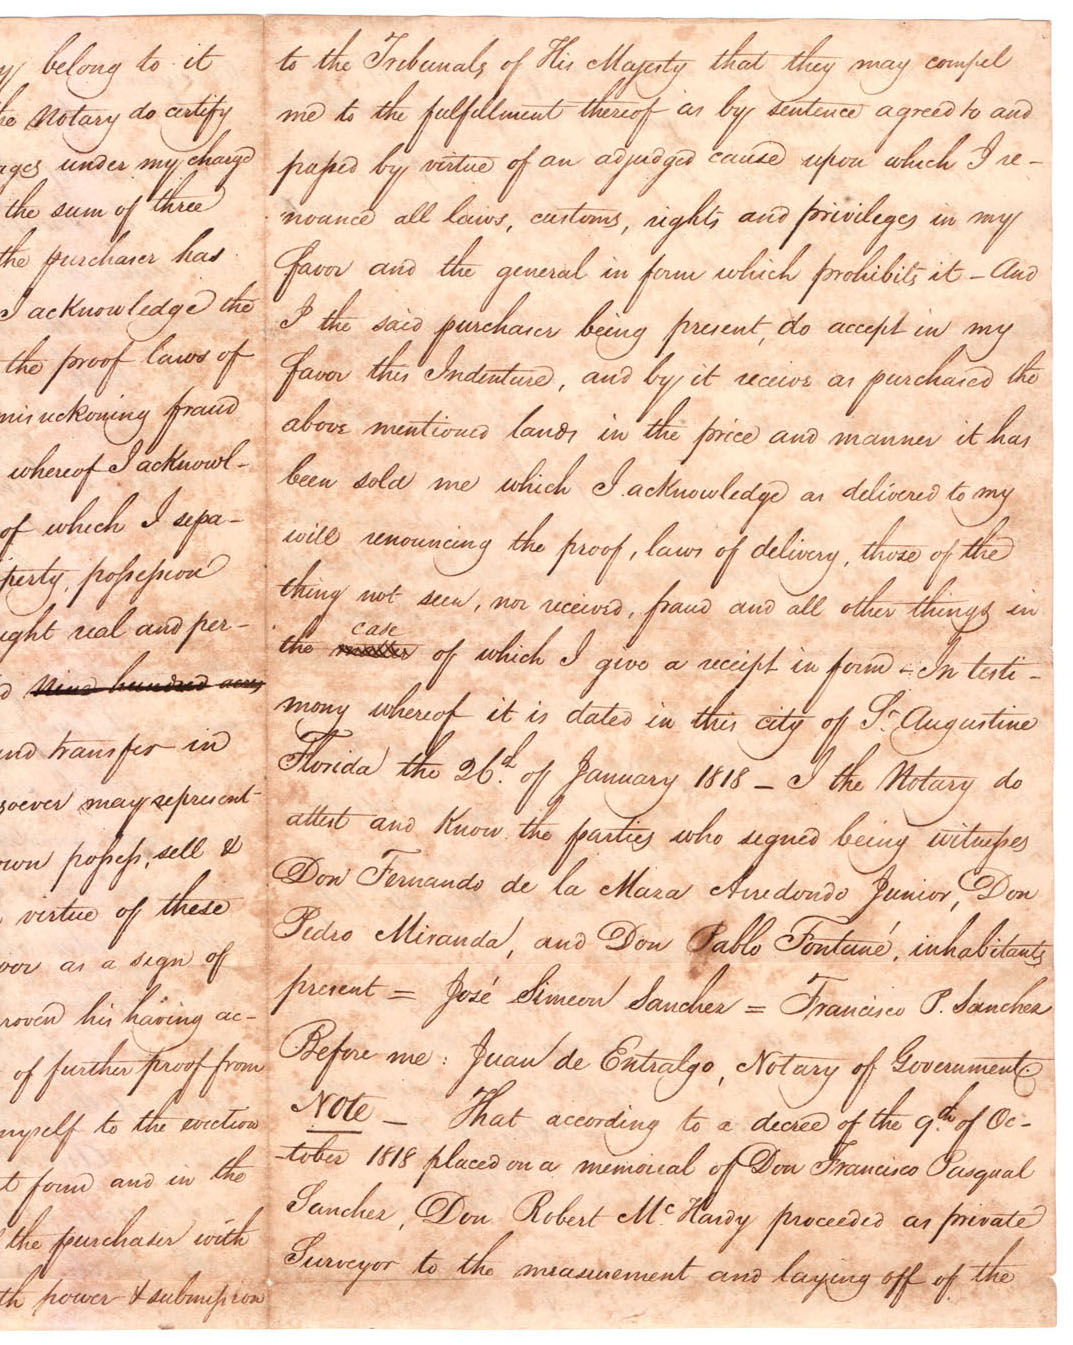 belong to it
Notary do certify
ages under my charge
the sum of three
the purchaser has
I acknowledge the
the proof laws of
misreckoning fraud
whereof I acknowl-
of which I sepa-
perty, possession
ight real and per-
nine hundred acres
and transfer in
soever may represent
own possess, sell &
virtue of these
as a sign of
proven his having ac-
of further proof from
myself to the eviction
form and in the
the purchaser with
power & submission
to the Tribunals of His Majesty that they may compel
me to the fulfillment thereof as by sentence agreed to and
passed by virtue of an adjudged cause upon which I re-
nounce all laws, customs, rights and privileges in my
favor and the general in form which prohibits it - And
I the said purchaser being present, do accept in my
favor this Indenture, and by it receive as purchased the
above mentioned lands in the price and manner it has
been sold me which I acknowledge as delivered to my
will renouncing the proof, laws of delivery, those of the
thing not seen, nor received, fraud and all other things in
case
the matter of which I give a receipt in form - In testi-
mony whereof it is dated in this city of St. Augustine
Florida the 26.d of January 1818 - I the Notary do
attest and know the parties who signed being witnesses
Don Fernando de la Maza Arredondo Junior, Don
Pedro Miranda, and Don Pablo Fontané, inhabitants
present = José Simeon Sanchez = Francisco P. Sanchez
Before me: Juan de Entralgo, Notary of Government.
Note - That according to a decree of the 9.th of Oc-
-tober 1818 placed on a memorial of Don Francisco Pasqual
Sanchez, Don Robert McHardy proceeded as private
Surveyor to the measurement and laying off of the